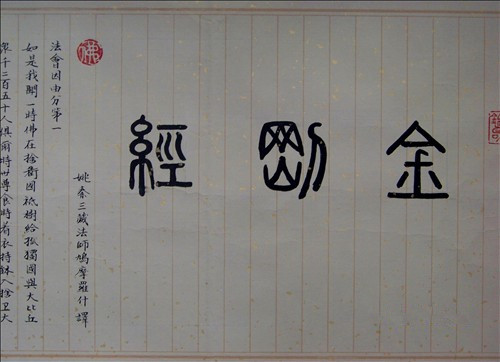 金剛經
姚秦三藏法師鳩摩羅什譯
佛
法會因由分第一
如是我聞一時佛在捨衛國祇樹給孤獨園與大比丘
眾千二百五十人俱爾時世尊食時着衣持缽入捨卫大